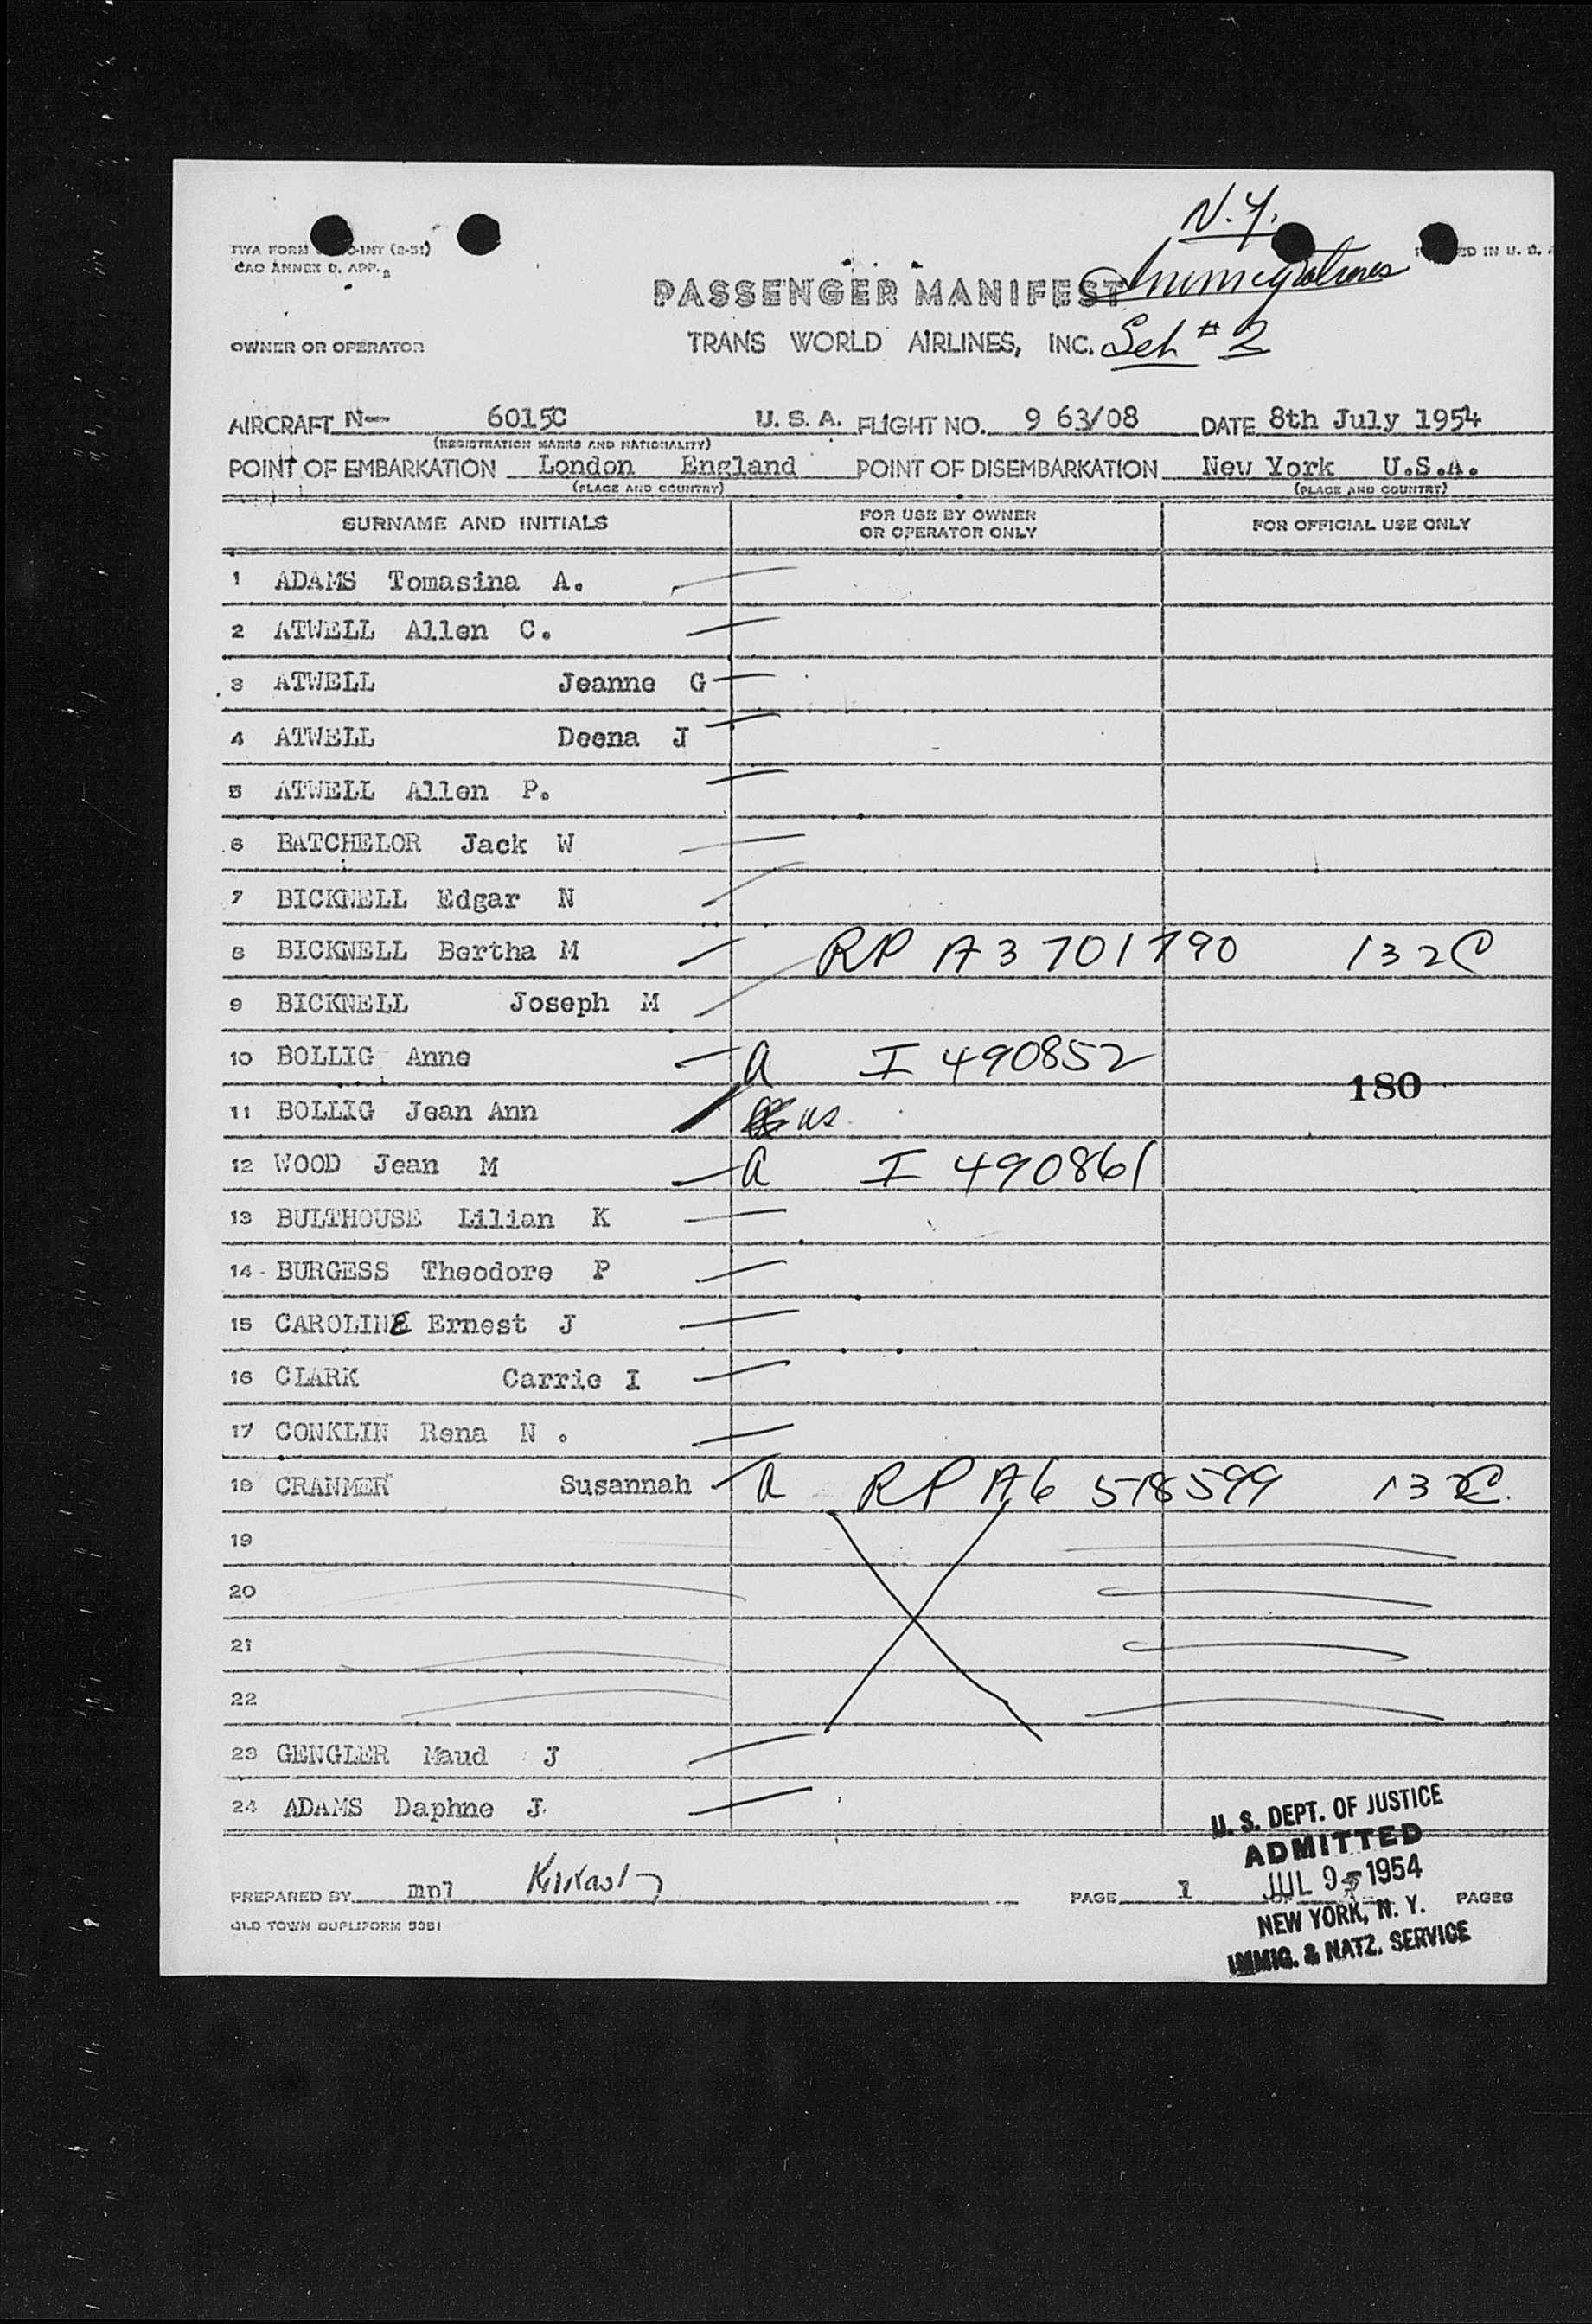 N.Y.
TWA FORM O-INT (2-51)
ED IN U. S. A
CAO ANNEX D. APP.
Immigrations
PASSENGER MANIFEST
OWNER OR OPERATOR TRANS WORLD AIRLINES, INC. Sch # 2
AIRCRAFT N— 6015C U. S. A. FLIGHT NO. 9 63/08 DATE 8th July 1954
(REGISTRATION MARKS AND NATIONALITY)
POINT OF EMBARKATION London England POINT OF DISEMBARKATION New York U.S.A.
(PLACE AND COUNTRY) (PLACE AND COUNTRY)
SURNAME AND INITIALS FOR USE BY OWNER OR OPERATOR ONLY FOR OFFICIAL USE ONLY
1 ADAMS Tomasina A.
2 ATWELL Allen C.
3 ATWELL Jeanne G
4 ATWELL Deena J
5 ATWELL Allen P.
6 BATCHELOR Jack W
7 BICKNELL Edgar N
8 BICKNELL Bertha M RP A3 701790 132C
9 BICKNELL Joseph M
10 BOLLIG Anne a I 490852
180
11 BOLLIG Jean Ann us
12 WOOD Jean M a I 490861
13 BULTHOUSE Lilian K
14 - BURGESS Theodore P
15 CAROLINE Ernest J
16 CLARK Carrie I
17 CONKLIN Rena N .
18 CRANMER Susannah a RP A6 518599 132C.
19
20
21
22
23 GENGLER Maud J
24 ADAMS Daphne J.
U. S. DEPT. OF JUSTICE
ADMITTED
PREPARED BY mpl PAGE 1 JUL 9 - 1954 PAGES
NEW YORK, N. Y.
OLD TOWN DUPLIFORM 5081
IMMIG. & NATZ. SERVICE